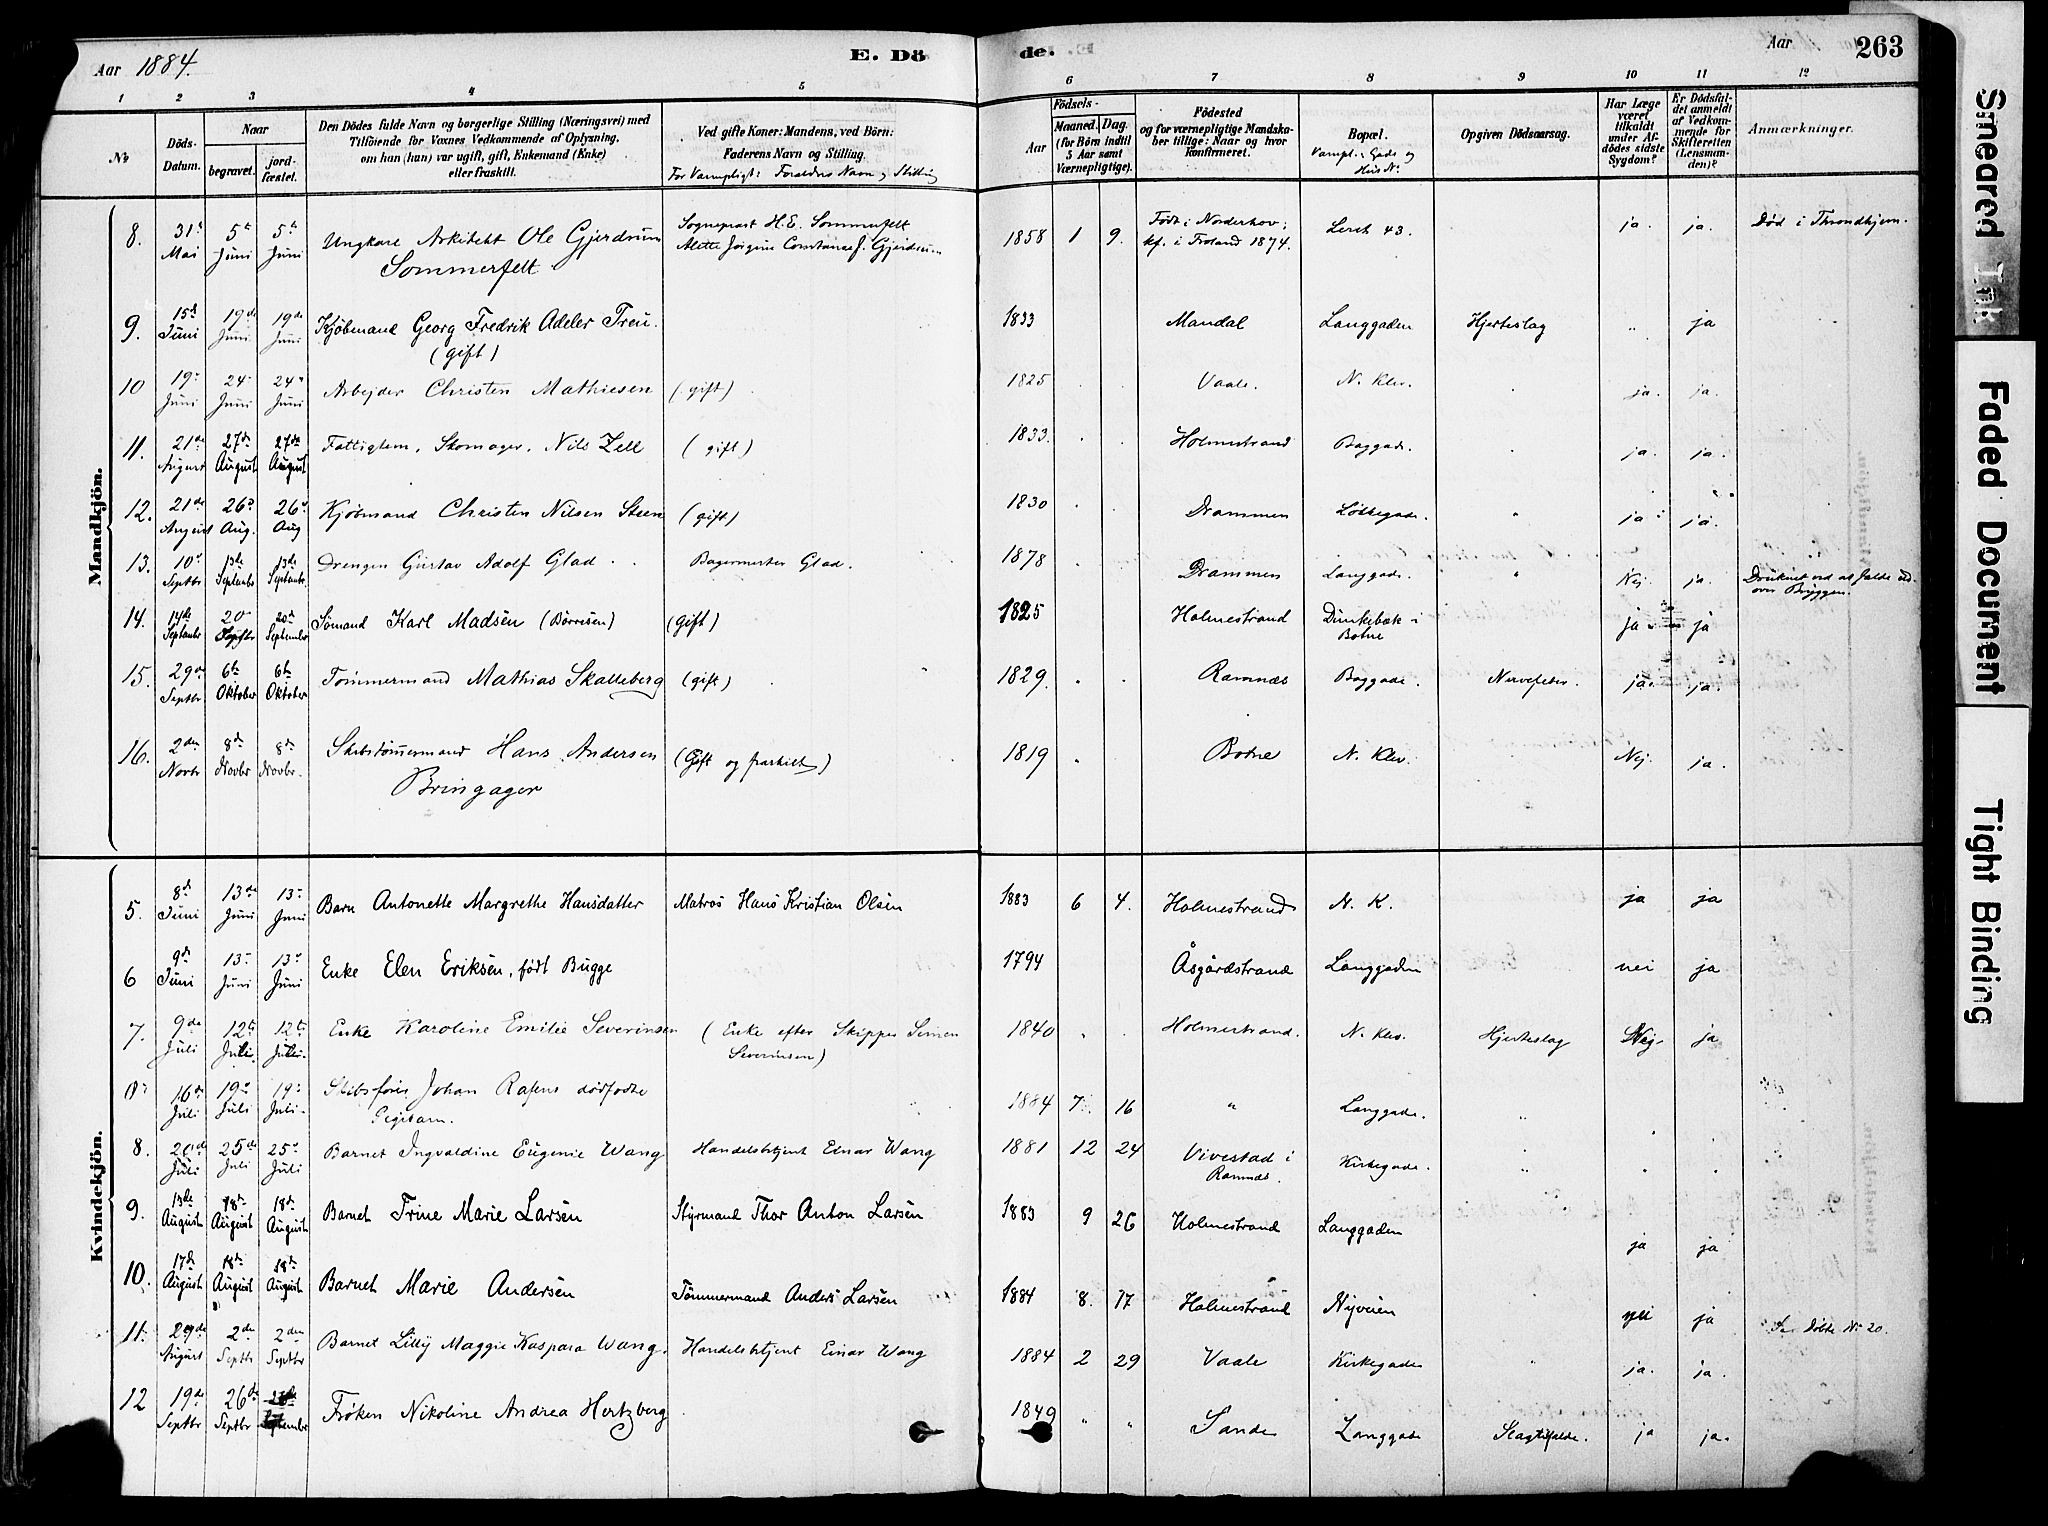 Aar 1884.
E. Dö
de.
Aar
263
1 2 3 4 5 6 7 8 9 10 11 12
No
Döds-Datum.
Naar
begravet.
jordfæstet.
Den Dödes fulde Navn og borgerlige Stilling (Næringsvei) med
Tilföiende for Voxnes Vedkommende af Oplysning,
om han (hun) var ugift, gift, Enkemand (Enke)
eller fraskilt.
Ved gifte Koner: Mandens, ved Börn:
Faderens Navn og Stilling.
For Værnepligt: Forældres Navn, Stilling
Födsels-
Aar
Maaned. Dag.
(for Börn indtil
5 Aar samt
Værnepligtige).
Födested
og for værnepligtige Mandskaber tillige: Naar og hvor
konfirmeret.
Bopæl.
Værnpl.: Gade og
Hus No
Opgiven Dödsaarsag.
Har Læge
været
tilkaldt
under Afdödes sidste
Sygdom?
Er Dödsfaldet anmeldt
af Vedkommende for
Skifteretten
(Lensmanden)?
Anmærkninger.
Mandkjön.
8. 31te Mai 5te Juni 5te Juni Ungkarl Arkitekt Ole Gjerdrum Sommerfelt Sogneprest H.E. Sommerfelt Alette Jörgine Constance f. Gjerdrum 1858 1 9. Födt i Norderhov; kf. i Froland 1874. Lerst 43. ja. ja. Död i Throndhjem.
9. 15de Juni 19de Juni 19de Juni Kjöbmand Georg Fredrik Adeler Treu. (gift) 1833 Mandal Langgaden Hjerteslag " ja
10 19de Juni 24de Juni 24de Juni Arbejder Christen Mathiesen (gift) 1825 Vaale. N. Klev. ja. ja.
11. 21de August 27de August 27de August Fattiglem, Skomager, Nils Zell (gift) 1833. Holmestrand Baggade. ja. ja.
12. 21de August 26de Aug. 26de Aug Kjöbmand Christen Nilsen Steen (gift) 1830 Drammen Lökkegade. " ja ja.
13. 10de Septbr 13de Septembr 13de Septembr Drengen Gustav Adolf Glad Bagermester Glad. 1878 Drammen Langgade. " Nej. ja. Druknet ved at falde ud over Bryggen.
14. 14de Septembr 20 Septbr 20de September Sömand Karl Madsen (Börresen) (gift) 1825 Holmestrand Dunkebæk i Botne ja ja
15. 29de Septbr 6te Oktober 6te Oktober Tömmermand Mathias Skalleberg (gift) 1829. Ramnæs Baggade. Nervefeber. ja. ja.
16. 2den Novbr 8de Novbr 8de Novbr. Skibstömmermand Hans Andersen Bringager (Gift og fraskilt) 1819 Botne N. Klev. Nej. ja.
Kvindekjön.
5. 8de Juni 13de Juni 13de Juni Barn Antonette Margrethe Hansdatter Matros Hans Kristian Olsen 1883 6 4. Holmestrand N. K. ja ja
6 9de Juni 13de Juni 13de Juni Enke Elen Eriksen, födt Bugge 1794 Åsgårdstrand Langgaden nei ja
7. 9de Juli 12te Juli. 12te Juli. Enke Karoline Emilie Severinsen (Enke efter Skipper Simen Severinsen) 1840 Holmestrand. N. Klev. Hjerteslag Nej. ja
0. 16de Juli 19de Juli 19de Juli. Skibsförer Johan Rafens dödfödte Pigebarn. 1884 7. 16 " Langgade. "
8. 20de Juli 25de Juli 25de Juli Barnet Ingvaldine Eugenie Wang Handelsbetjent Einar Wang 1881 12 24 Vivestad i Ramnæs. Kirkegade. "
9. 13de August 18de August 18de August Barnet Trine Marie Larsen Styrmand Thor Anton Larsen 1883 9 26 Holmestrand Langgaden ja ja
10. 17de August 18de August 18de August Barnet Marie Andersen Tömmermand Anders Larsen 1884 8. 17 Holmestrand Nyveien nei ja
11. 29de August 2den Septbr 2den Septbr Barnet Lilly Maggie Kaspara Wang. Handelsbetjent Einar Wang 1884 2 29 Vaale Kirkegade ja. ja. Se döbte No 20.
12 19de Septbr 26de Septbr 26de September Fröken Nikoline Andrea Hertzberg 1849 " " Sande Langgade Slagtilfælde. ja ja.
Smeared Ink
Faded Document
Tight Binding